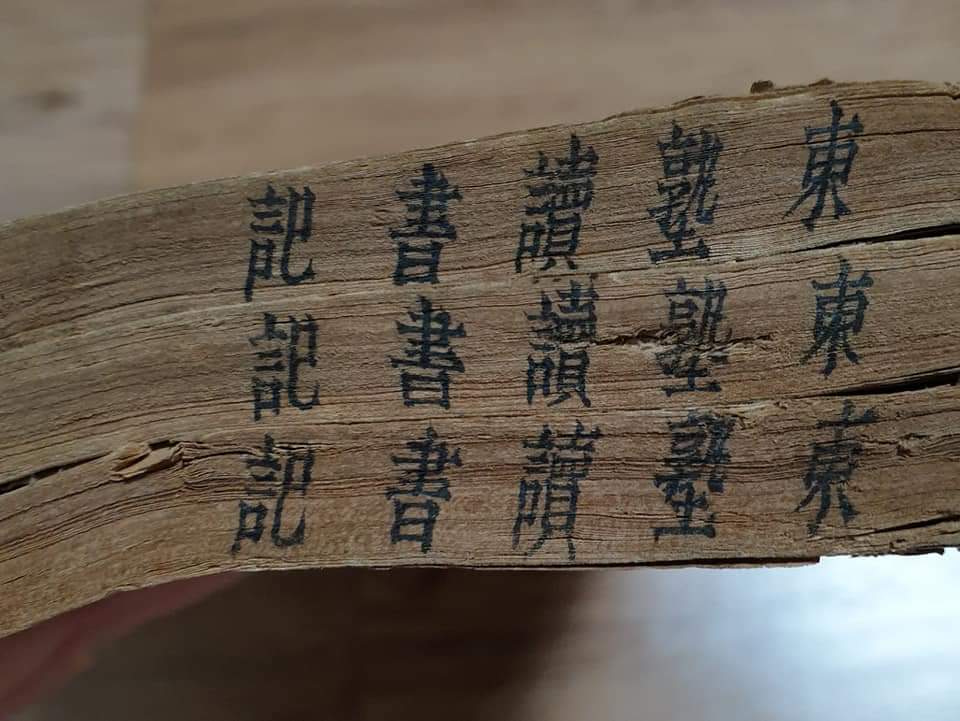 東塾讀書記
東塾讀書記
東塾讀書記